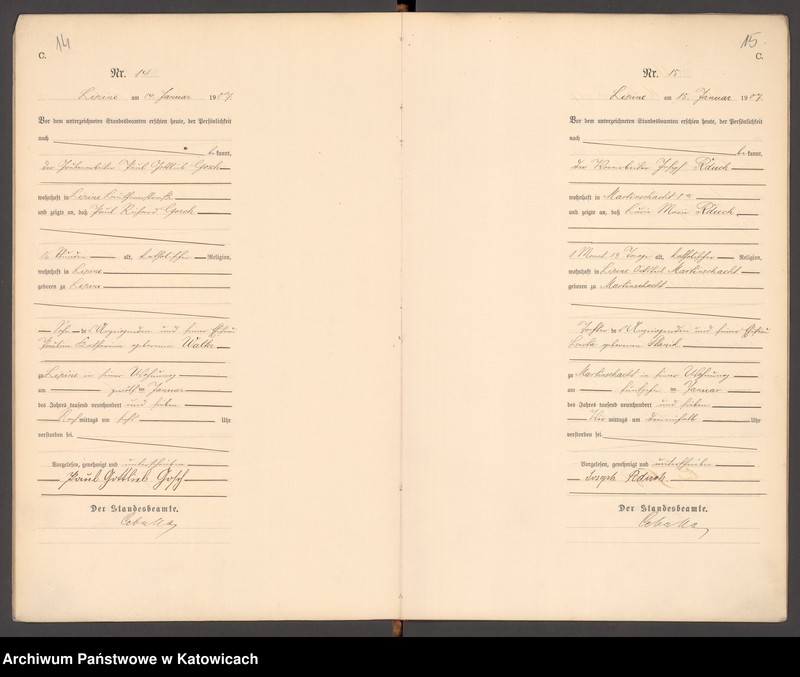 14
C.
Nr. 14
Lipine am 14 Januar 1907.
Vor dem unterzeichneten Standesbeamten erschien heute, der Persönlichkeit
nach
be kannt,
der Paul Gottlieb Gosch
wohnhaft in Lipine
und zeigte an, daß Paul Richard Gosch
Stunden alt, katholischer Religion,
wohnhaft in Lipine
geboren zu Lipine
Sohn des Anzeigenden und seiner Ehefrau
Katharina geborenen
zu Lipine in seiner Wohnung
am zwölften Januar
des Jahres tausend neunhundert und sieben
Nachmittags um Uhr
verstorben sei.
Vorgelesen, genehmigt und unterschrieben
Paul Gottlieb Gosch
Der Standesbeamte.
15.
C.
Nr. 15
Lipine am 15. Januar 1907.
Vor dem unterzeichneten Standesbeamten erschien heute, der Persönlichkeit
nach
be kannt,
der Vorarbeiter Josef Rduch
wohnhaft in Martinschacht
und zeigte an, daß Lucie Marie Rduch
1 Monat 13 Tage alt, katholischer Religion,
wohnhaft in Lipine Ortsteil Martinschacht
geboren zu Martinschacht
Tochter des Anzeigenden und seiner Ehefrau
geborenen
zu Martinschacht in seiner Wohnung
am Januar
des Jahres tausend neunhundert und sieben
Vormittags um Uhr
verstorben sei.
Vorgelesen, genehmigt und unterschrieben
Joseph Rduch
Der Standesbeamte.
Archiwum Państwowe w Katowicach